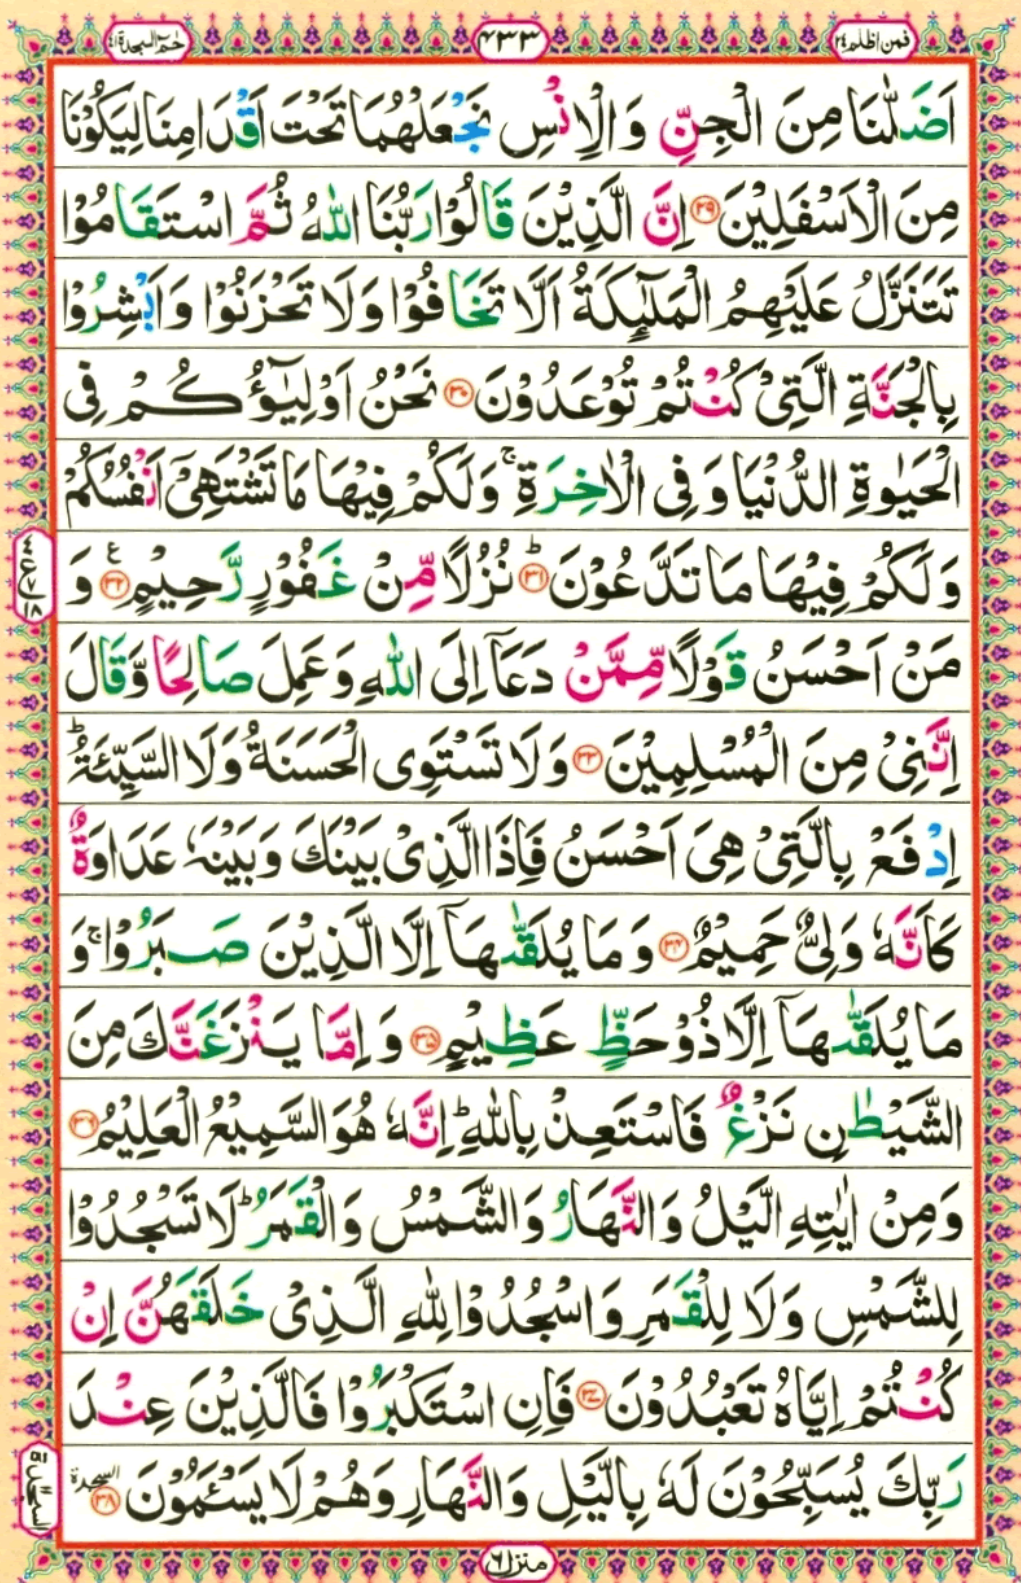 فمن اظلم ٢٤
٤٣٣
حٰمٓ السجدة ٤١
اَضَلّٰنَا مِنَ الْجِنِّ وَ الْاِنْسِ نَجْعَلْهُمَا تَحْتَ اَقْدَامِنَا لِیَكُوْنَا
مِنَ الْاَسْفَلِیْنَ ﴿۲۹﴾ اِنَّ الَّذِیْنَ قَالُوْا رَبُّنَا اللّٰهُ ثُمَّ اسْتَقَامُوْا
تَتَنَزَّلُ عَلَیْهِمُ الْمَلٰٓىِٕكَةُ اَلَّا تَخَافُوْا وَ لَا تَحْزَنُوْا وَ اَبْشِرُوْا
بِالْجَنَّةِ الَّتِیْ كُنْتُمْ تُوْعَدُوْنَ ﴿۳۰﴾ نَحْنُ اَوْلِیٰٓؤُكُمْ فِی
الْحَیٰوةِ الدُّنْیَا وَ فِی الْاٰخِرَةِ ۚ وَ لَكُمْ فِیْهَا مَا تَشْتَهِیْۤ اَنْفُسُكُمْ
وَ لَكُمْ فِیْهَا مَا تَدَّعُوْنَ ؕ﴿۳۱﴾ نُزُلًا مِّنْ غَفُوْرٍ رَّحِیْمٍ ﴿۳۲﴾ ع وَ
مَنْ اَحْسَنُ قَوْلًا مِّمَّنْ دَعَاۤ اِلَی اللّٰهِ وَ عَمِلَ صَالِحًا وَّ قَالَ
اِنَّنِیْ مِنَ الْمُسْلِمِیْنَ ﴿۳۳﴾ وَ لَا تَسْتَوِی الْحَسَنَةُ وَ لَا السَّیِّئَةُ ؕ
اِدْفَعْ بِالَّتِیْ هِیَ اَحْسَنُ فَاِذَا الَّذِیْ بَیْنَكَ وَ بَیْنَهٗ عَدَاوَةٌ
كَاَنَّهٗ وَلِیٌّ حَمِیْمٌ ﴿۳۴﴾ وَ مَا یُلَقّٰىهَاۤ اِلَّا الَّذِیْنَ صَبَرُوْا ۚ وَ
مَا یُلَقّٰىهَاۤ اِلَّا ذُوْ حَظٍّ عَظِیْمٍ ﴿۳۵﴾ وَ اِمَّا یَنْزَغَنَّكَ مِنَ
الشَّیْطٰنِ نَزْغٌ فَاسْتَعِذْ بِاللّٰهِ ؕ اِنَّهٗ هُوَ السَّمِیْعُ الْعَلِیْمُ ﴿۳۶﴾
وَ مِنْ اٰیٰتِهِ الَّیْلُ وَ النَّهَارُ وَ الشَّمْسُ وَ الْقَمَرُ ؕ لَا تَسْجُدُوْا
لِلشَّمْسِ وَ لَا لِلْقَمَرِ وَ اسْجُدُوْا لِلّٰهِ الَّذِیْ خَلَقَهُنَّ اِنْ
كُنْتُمْ اِیَّاهُ تَعْبُدُوْنَ ﴿۳۷﴾ فَاِنِ اسْتَكْبَرُوْا فَالَّذِیْنَ عِنْدَ
رَبِّكَ یُسَبِّحُوْنَ لَهٗ بِالَّیْلِ وَ النَّهَارِ وَ هُمْ لَا یَسْـَٔمُوْنَ ﴿۳۸﴾ السجدة
منزل ٦